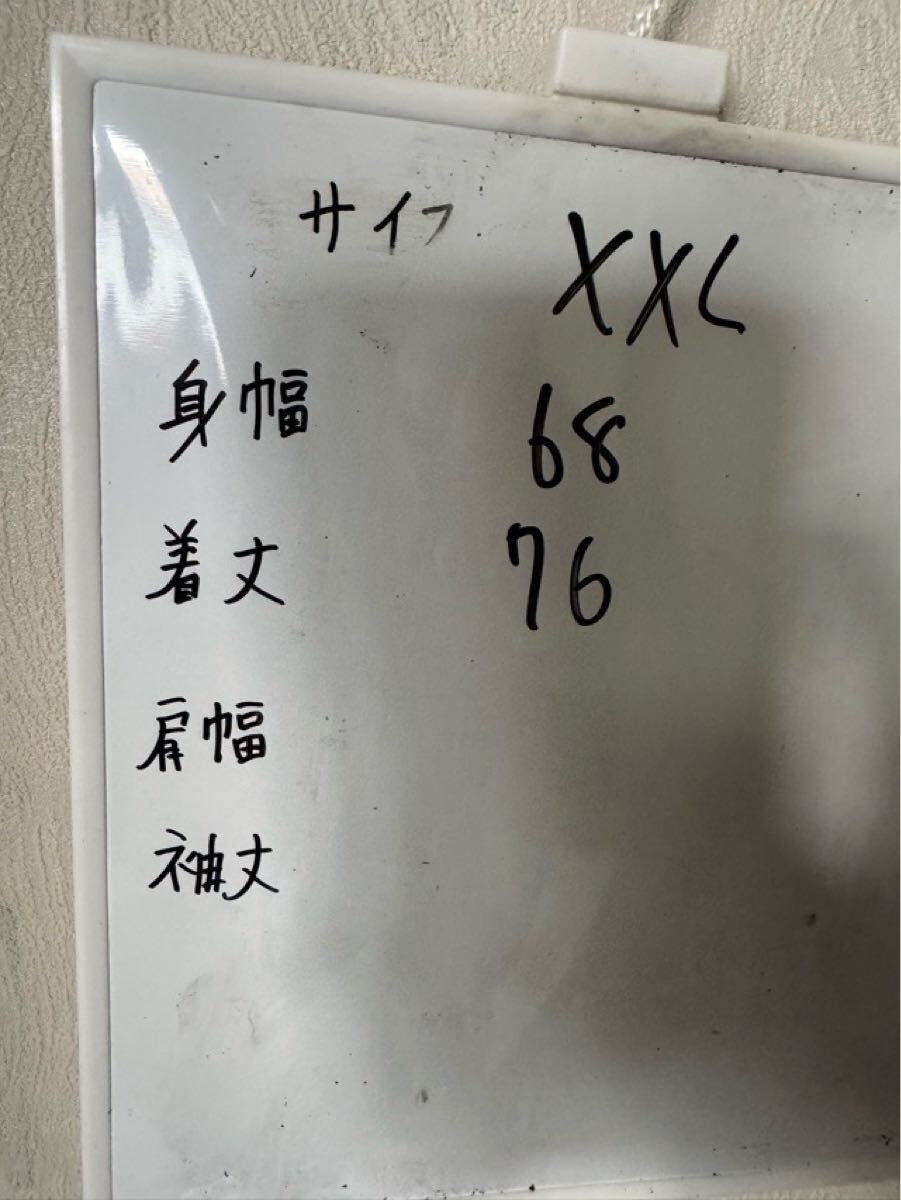 サイフ XXL
身幅 68
着丈 76
肩幅
袖丈